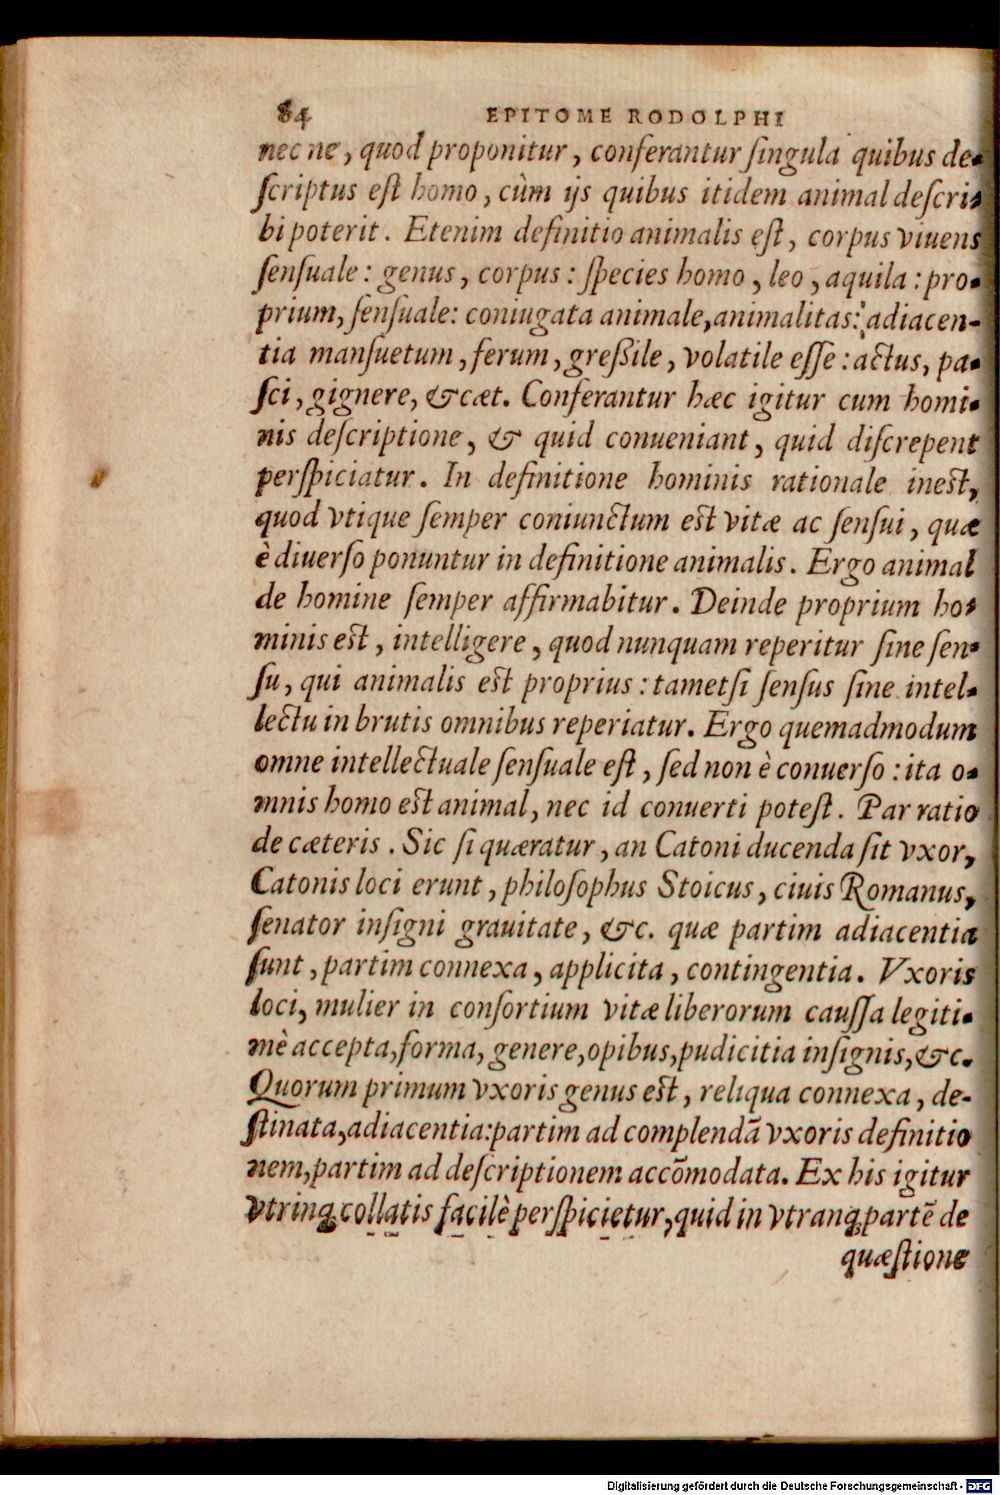 84 EPITOME RODOLPHI
nec ne, quod proponitur, conferantur ſingula quibus de-
ſcriptus eſt homo, cùm ijs quibus itidem animal deſcri-
bi poterit. Etenim definitio animalis eſt, corpus viuens
ſenſuale: genus, corpus: ſpecies homo, leo, aquila: pro-
prium, ſenſuale: coniugata animale, animalitas: adiacen-
tia manſuetum, ferum, greſsile, volatile eſſe: actus, pa-
ſci, gignere, &cæt. Conferantur hæc igitur cum homi-
nis deſcriptione, & quid conueniant, quid diſcrepent
perſpiciatur. In definitione hominis rationale ineſt,
quod vtique ſemper coniunctum eſt vitæ ac ſenſui, quæ
è diuerſo ponuntur in definitione animalis. Ergo animal
de homine ſemper affirmabitur. Deinde proprium ho-
minis eſt, intelligere, quod nunquam reperitur ſine ſen-
ſu, qui animalis eſt proprius: tametſi ſenſus ſine intel-
lectu in brutis omnibus reperiatur. Ergo quemadmodum
omne intellectuale ſenſuale eſt, ſed non è conuerſo: ita o-
mnis homo eſt animal, nec id conuerti poteſt. Par ratio
de cæteris. Sic ſi quæratur, an Catoni ducenda ſit vxor,
Catonis loci erunt, philoſophus Stoicus, ciuis Romanus,
ſenator inſigni grauitate, &c. quæ partim adiacentia
ſunt, partim connexa, applicita, contingentia. Vxoris
loci, mulier in conſortium vitæ liberorum cauſſa legiti-
mè accepta, forma, genere, opibus, pudicitia inſignis, &c.
Quorum primum vxoris genus eſt, reliqua connexa, de-
ſtinata, adiacentia: partim ad complendã vxoris definitio
nem, partim ad deſcriptionem accõmodata. Ex his igitur
vtrinq; collatis facilè perſpicietur, quid in vtranq; partẽ de
quæſtione
Digitalisierung gefördert durch die Deutsche Forschungsgemeinschaft - DFG